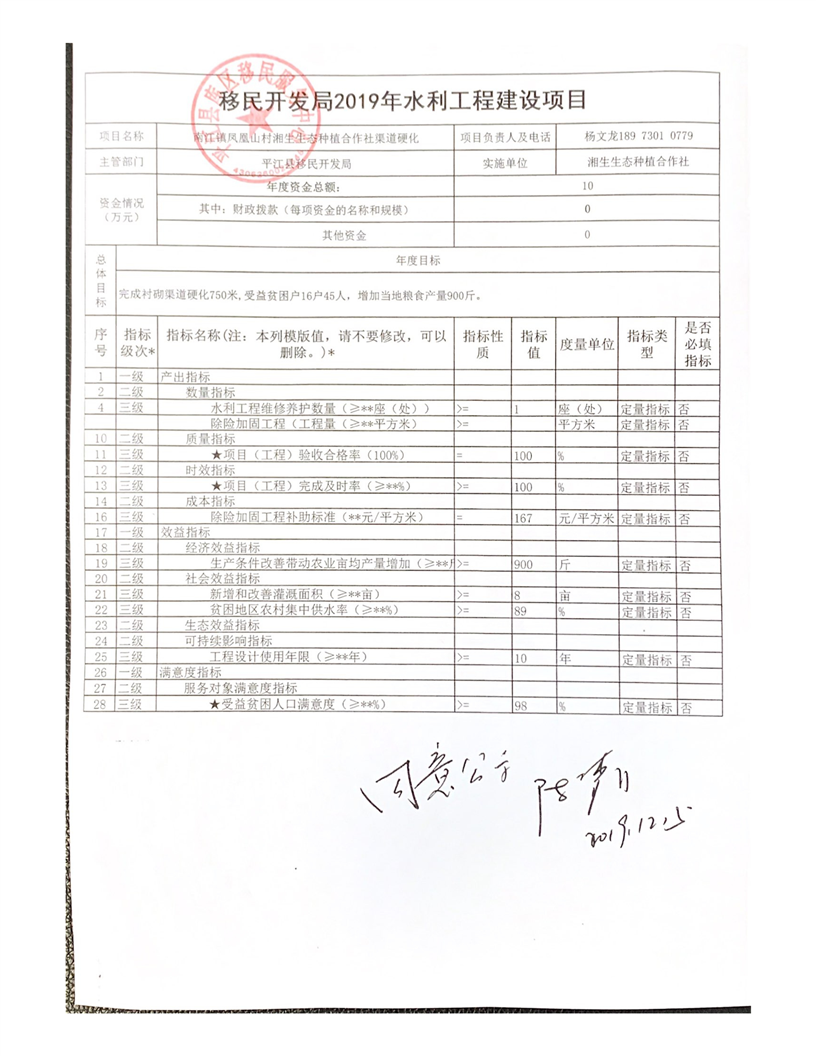 移民开发局2019年水利工程建设项目
项目名称 南江镇凤凰山村湘生生态种植合作社渠道硬化 项目负责人及电话 杨文龙189 7301 0779
主管部门 平江县移民开发局 实施单位 湘生生态种植合作社
资金情况（万元） 年度资金总额： 10
其中：财政拨款（每项资金的名称和规模） 0
其他资金 0
总体目标 年度目标
完成衬砌渠道硬化750米,受益贫困户16户45人，增加当地粮食产量900斤。
序号 指标级次* 指标名称(注：本列模版值，请不要修改，可以删除。)* 指标性质 指标值 度量单位 指标类型 是否必填指标
1 一级 产出指标
2 二级 数量指标
4 三级 水利工程维修养护数量（≥**座（处）） >= 1 座（处） 定量指标 否
除险加固工程（工程量（≥**平方米） >= 平方米 定量指标 否
10 二级 质量指标
11 三级 ★项目（工程）验收合格率（100%） = 100 % 定量指标 否
12 二级 时效指标
13 三级 ★项目（工程）完成及时率（≥**%） >= 100 % 定量指标 否
14 二级 成本指标
16 三级 除险加固工程补助标准（**元/平方米） = 167 元/平方米 定量指标 否
17 一级 效益指标
18 二级 经济效益指标
19 三级 生产条件改善带动农业亩均产量增加（≥** >= 900 斤 定量指标 否
20 二级 社会效益指标
21 三级 新增和改善灌溉面积（≥**亩） >= 8 亩 定量指标 否
22 三级 贫困地区农村集中供水率（≥**%） >= 89 % 定量指标 否
23 二级 生态效益指标
24 二级 可持续影响指标
25 三级 工程设计使用年限（≥**年） >= 10 年 定量指标 否
26 一级 满意度指标
27 二级 服务对象满意度指标
28 三级 ★受益贫困人口满意度（≥**%） >= 98 % 定量指标 否
同意公示
2019.12.5